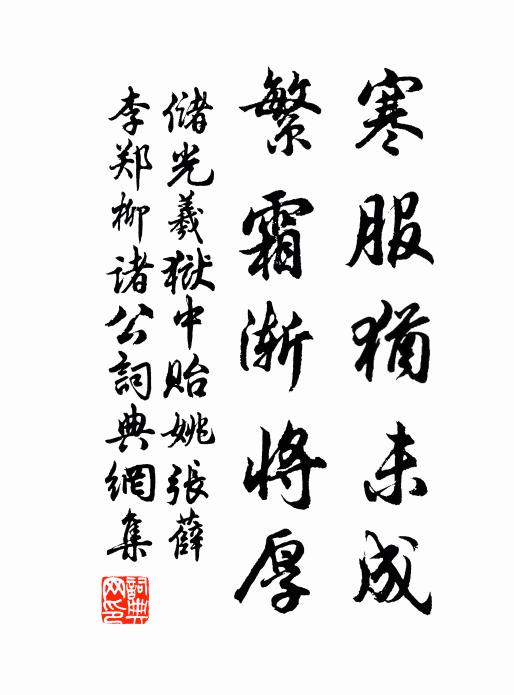 寒服猶未成
繁霜渐将厚
儲光羲獄中貽姚張薛
李郑柳诸公詞典網集
詞典
网印